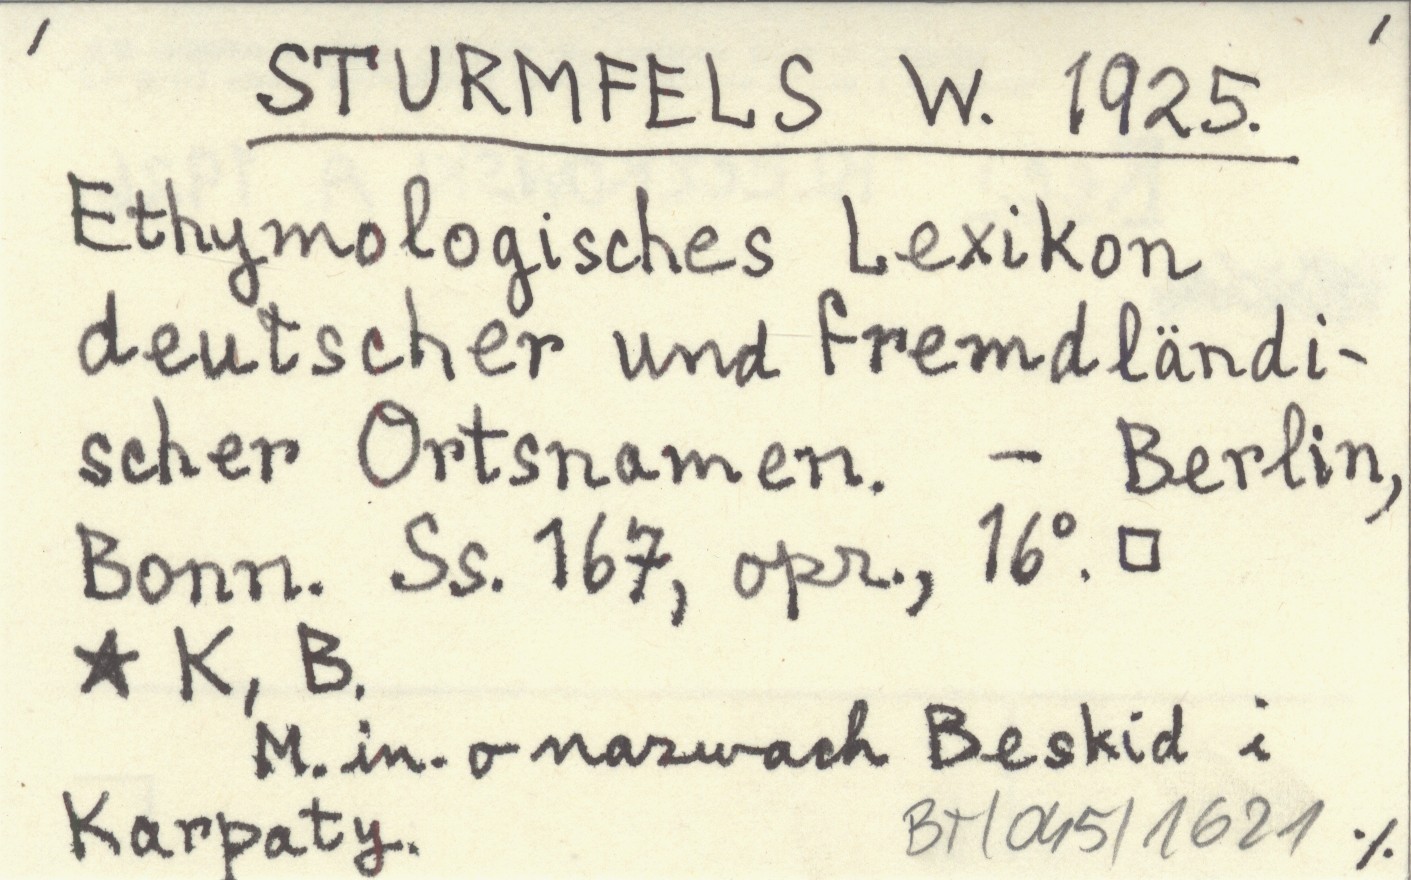 STURMFELS W. 1925.
Ethymologisches Lexikon
deutscher und fremdländi-
scher Ortsnamen. - Berlin,
Bonn. Ss. 167, opr., 16°. □
★ K, B.
M. in. o nazwach Beskid i
Karpaty.
BT/045/1621 ./.